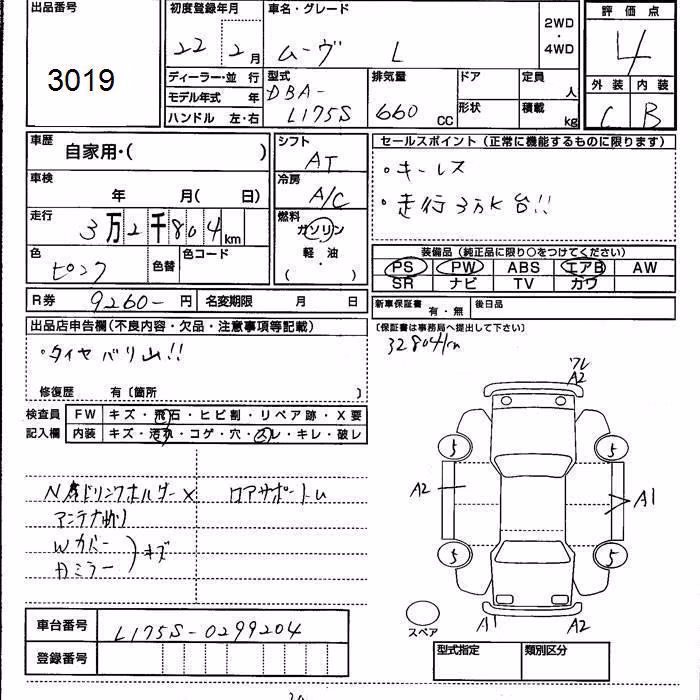 出品番号
3019
初度登録年月
22 2月
車名・グレード
ムーヴ L
2WD
・
4WD
評価点
4
外装 内装
C B
ディーラー・並 行
モデル年式 年
ハンドル 左・右
型式
DBA-
L175S
排気量
660 cc
ドア
形状
定員 人
積載 kg
車歴
自家用・( )
車検
年 月( 日)
走行
3万2千804km
色
ピンク
色替
色コード
シフト
AT
冷房
A/C
燃料
ガソリン
・
軽・油
( )
セールスポイント(正常に機能するものに限ります)
・キーレス
・走行3万K台!!
装備品(純正品に限り○をつけてください)
PS PW ABS エアB AW
SR ナビ TV カワ
R券 9260- 円
名変期限 月 日
新車保証書
有・無
後日品
〔保証書は事務局へ提出して下さい〕
32804km
出品店申告欄(不良内容・欠品・注意事項等記載)
・タイヤバリ山!!
修復歴 有〔箇所 〕
検査員
記入欄
FW キズ・飛石・ヒビ割・リペア跡・X要
内装 キズ・汚れ・コゲ・穴・スレ・キレ・破レ
ドリンクホルダー×
ロアサポートU
アンテナ
Wカバー
ミラー
キズ
ワレ
A2
5
5
A2
A1
5
5
スペア
A1
A2
車台番号
L175S-0299204
登録番号
型式指定
類別区分